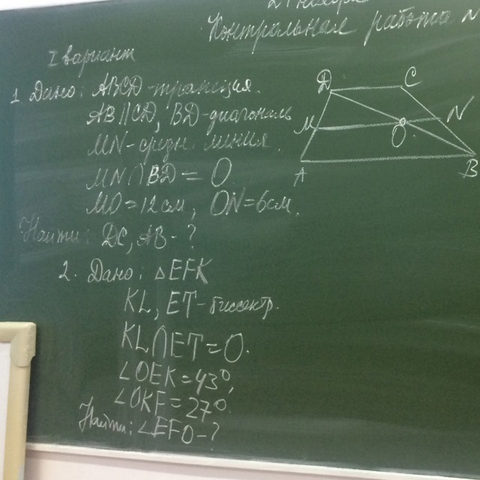 Контрольная работа №
I вариант
1. Дано: ABCD-трапеция.
AB||CD, BD-диагональ
MN-средн. линия.
MN∩BD=O
MO=12см, ON=6см.
Найти: DC, AB-?
D C
M N
O
A B
2. Дано: △EFK
KL, ET-биссектр.
KL∩ET=O.
∠OEK=43°,
∠OKF=27°.
Найти: ∠EFO-?